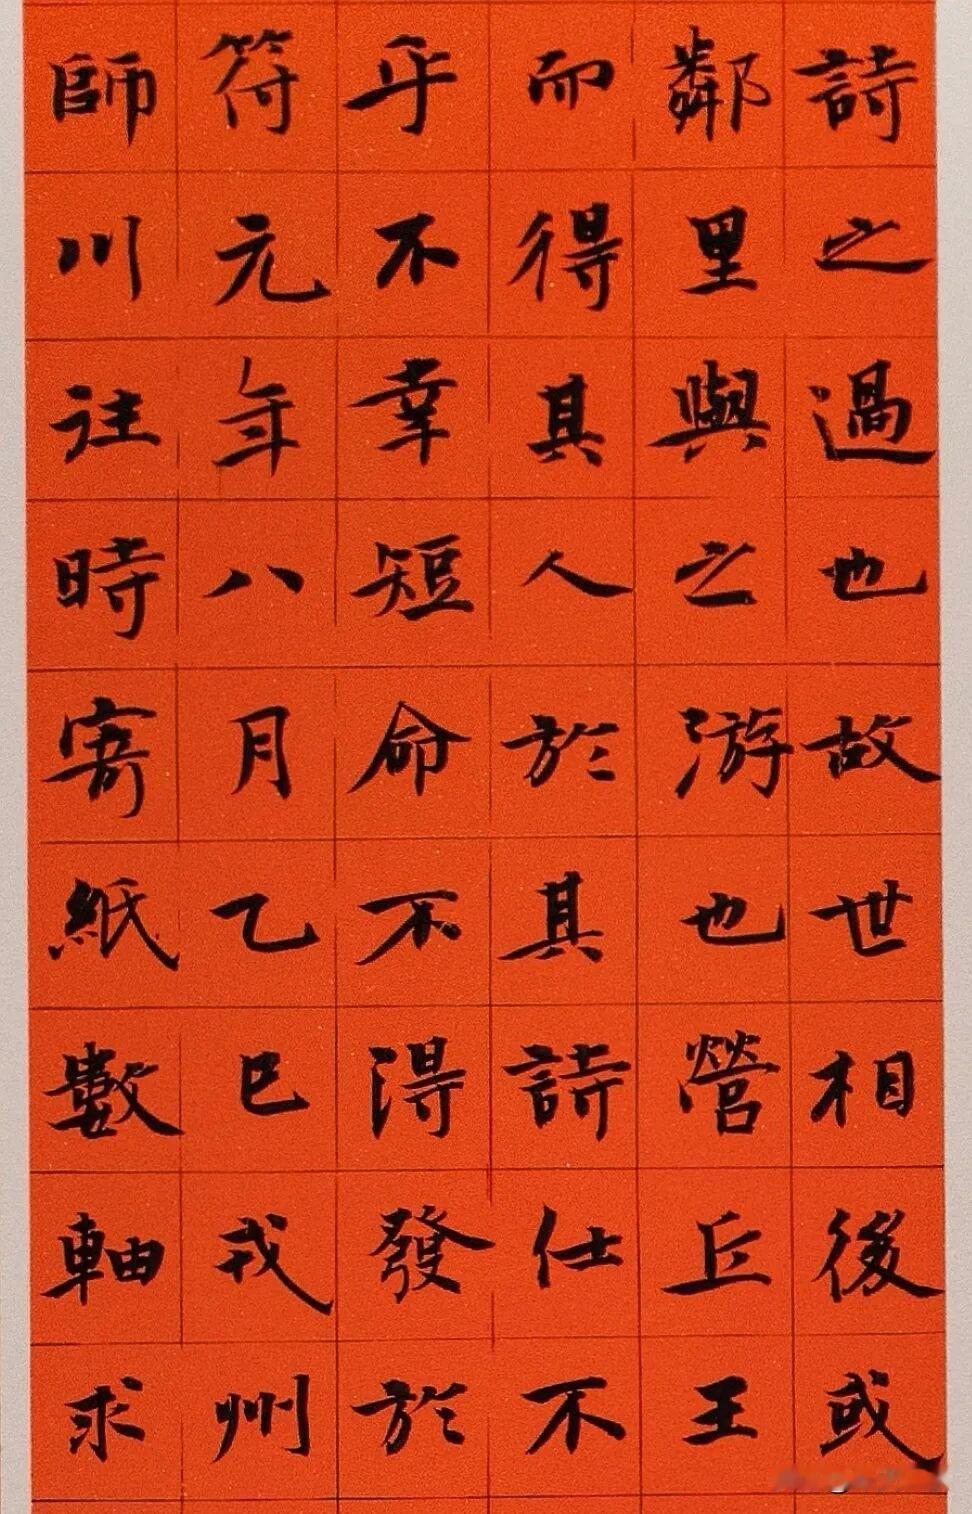 詩之過也故世相後或
鄰里與之游也營丘王
而得其人於其詩仕不
乎不幸短命不得發於
符元年八月乙巳戎州
師川往時寄紙數軸求